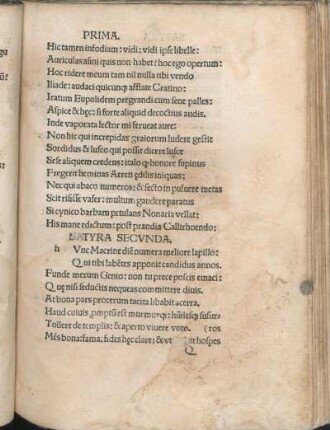 PRIMA.
Hic tamen infodiam: vidi: vidi ipse libelle:
Auriculas asini quis non habet? hoc ego opertum:
Hoc ridere meum tam nil nulla tibi vendo
Iliade: audaci quicunq; afflate Cratino:
Iratum Eupolidem pregrandi cum sene palles:
Aspice & hęc: si forte aliquid decoctius audis.
Inde vaporata lector mi ferueat aure:
Non hic qui in crepidas graiorum ludere gestit
Sordidus & lusco qui possit dicere lusce
Sese aliquem credens: italo q honore supinus
Fregerit heminas Arreti ędilis iniquas:
Nec qui abaco numeros: & secto in puluere metas
Scit risisse vafer: multum gaudere paratus
Si cynico barbam petulans Nonaria vellat:
His mane edictum: post prandia Callirhoendo:
SATYRA SECVNDA.
h Vnc Macrine diē numera meliore lapillo:
Qui tibi labētes apponit candidus annos.
Funde merum Genio: non tu prece poscis emaci:
Que nisi seductis nequeas committere diuis.
At bona pars procerum tacita libabit acerra,
Haud cuiuis, promptū est murmurq; hūilesq; susur-
Tollere de templis: & aperto viuere voto. (ros
Mēs bona: fama: fides hęc clare: & vt hospes
Q